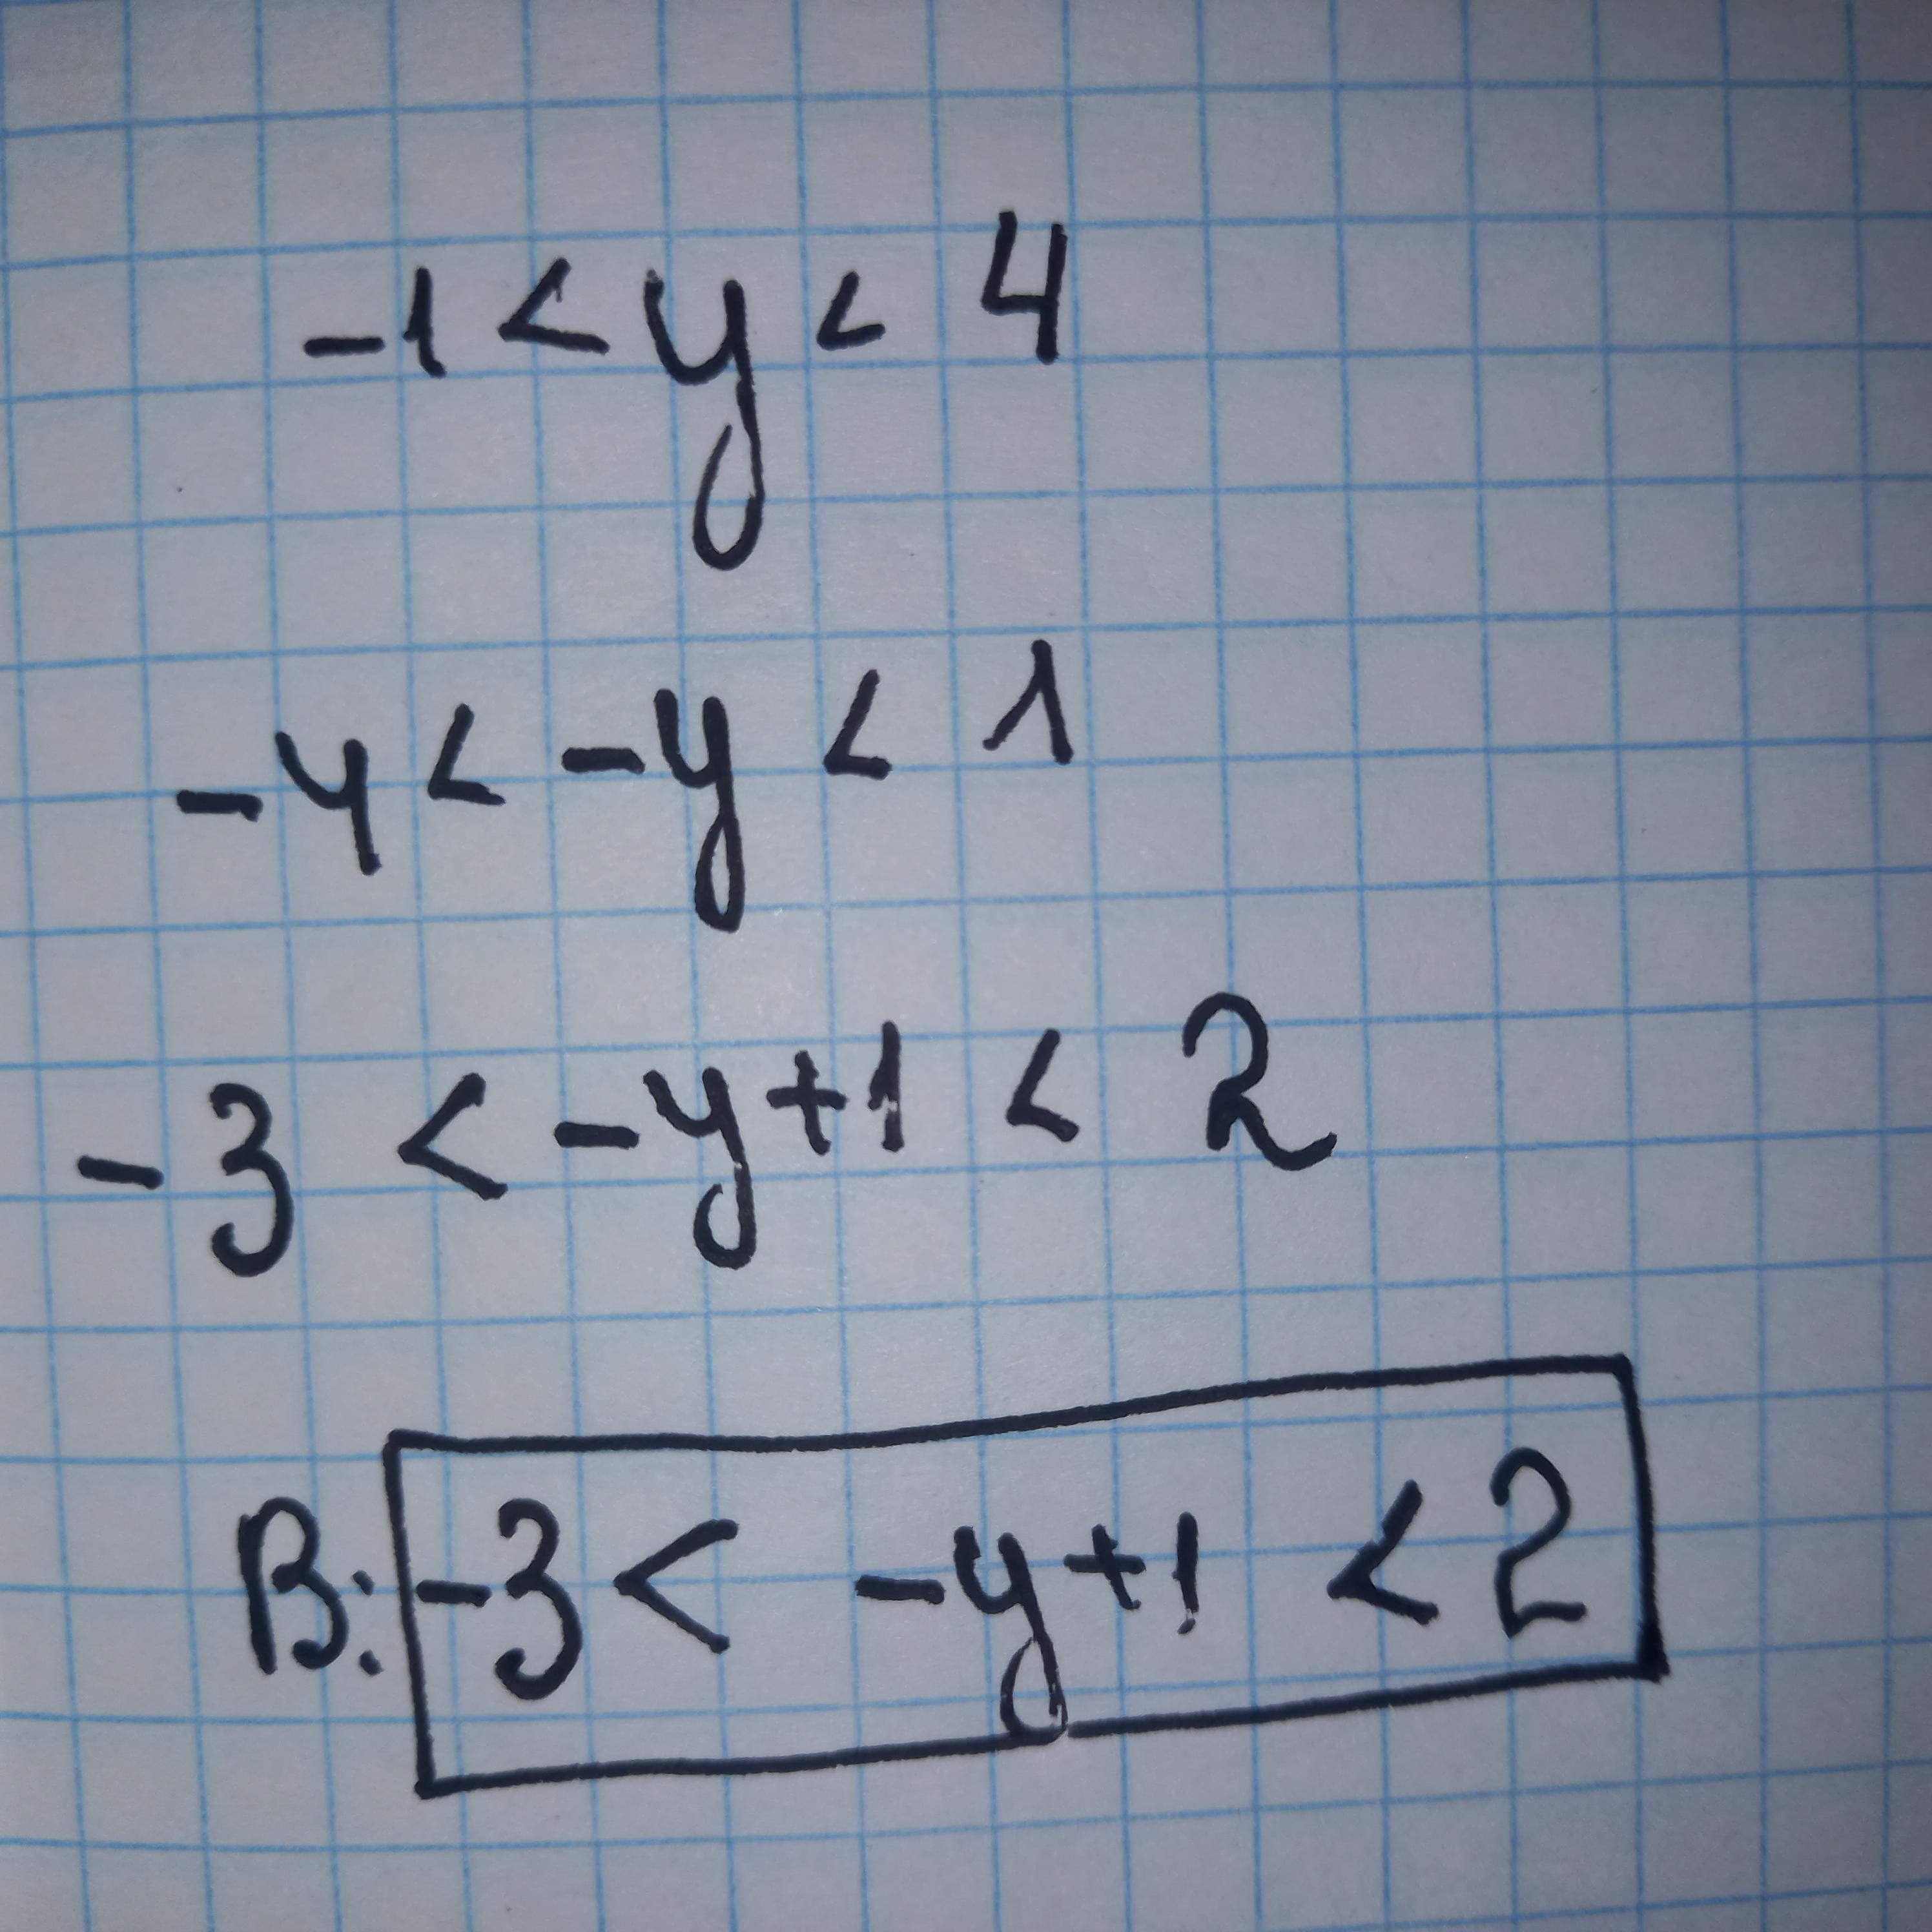 -1 < y < 4
-4 < -y < 1
-3 < -y+1 < 2
В: -3 < -y+1 < 2